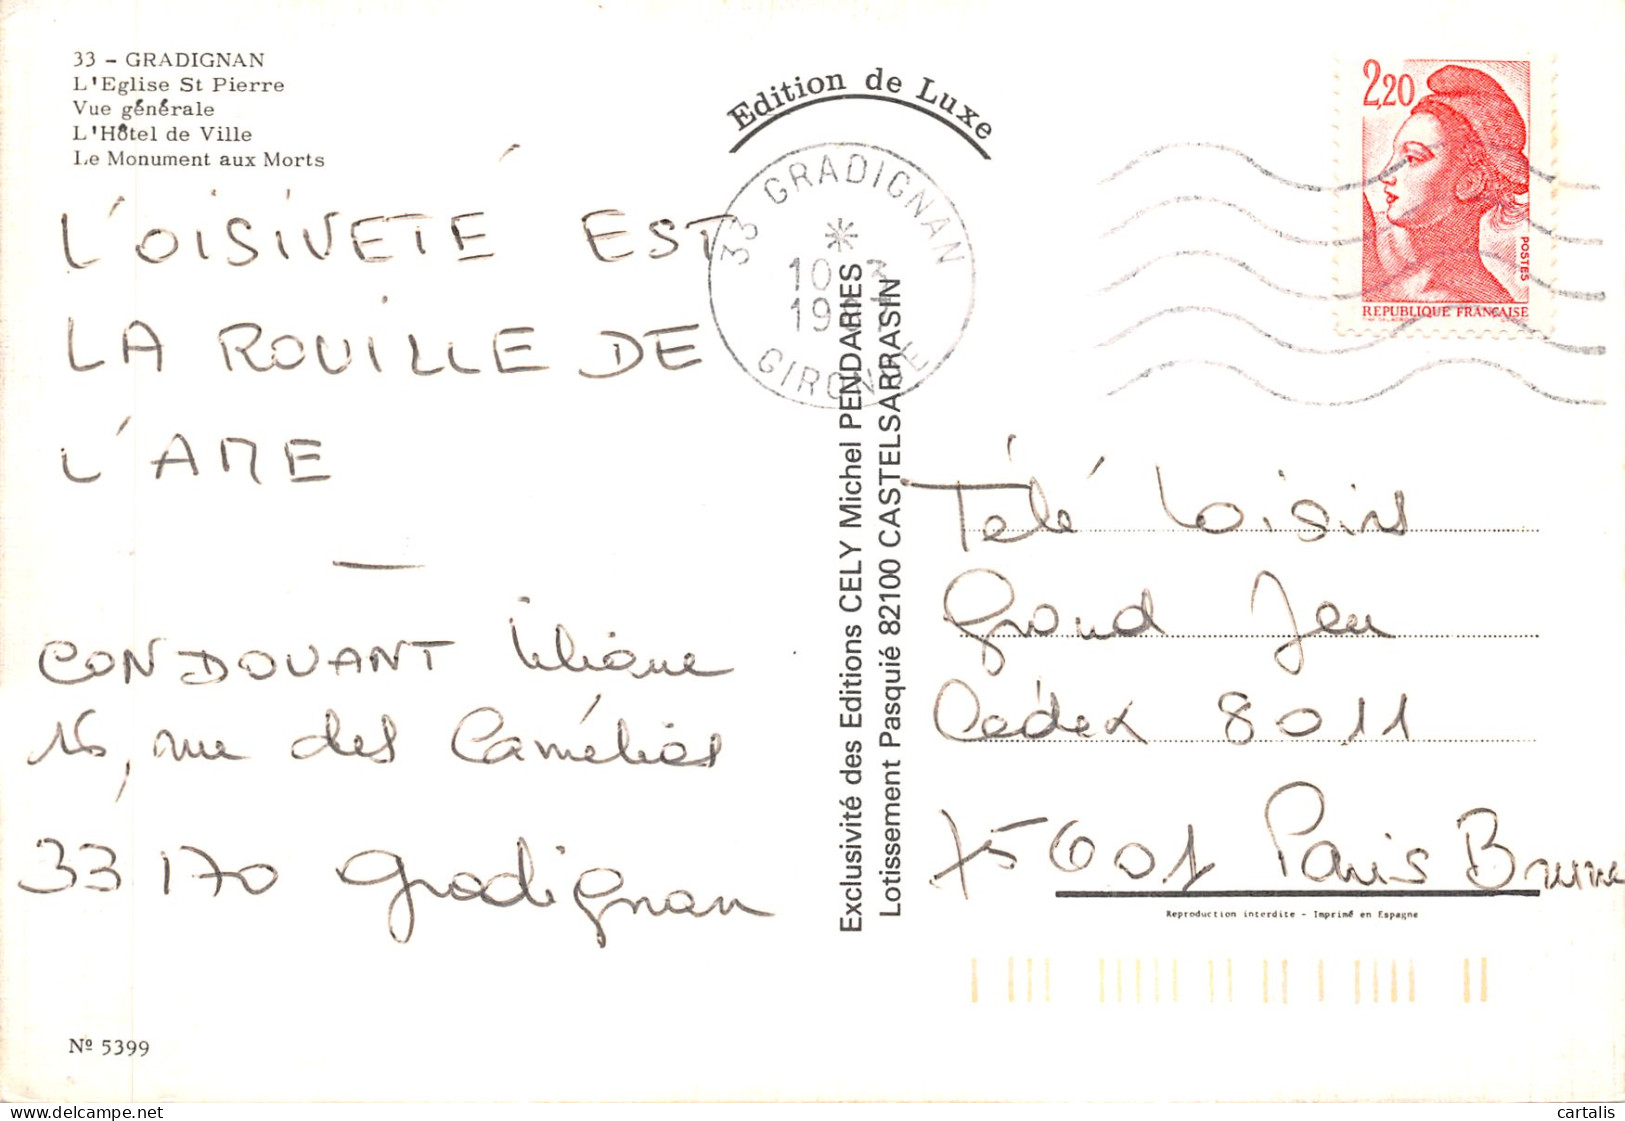 33 - GRADIGNAN
L'Eglise St Pierre
Vue générale
L'Hôtel de Ville
Le Monument aux Morts
L'OISIVETÉ EST
LA ROUILLE DE
L'AME
—
CONDOUANT Liliane
16, rue des Camélias
33170 Gradignan
Nº 5399
Edition de Luxe
33 GRADIGNAN
10 3
19
GIRONDE
Exclusivité des Editions CELY Michel PENDARIES
Lotissement Pasquié 82100 CASTELSARRASIN
2,20
POSTES
REPUBLIQUE FRANÇAISE
Télé Loisirs
Grand Jeu
Cedex 8011
75601 Paris Brune
Reproduction interdite - Imprimé en Espagne
cartalis